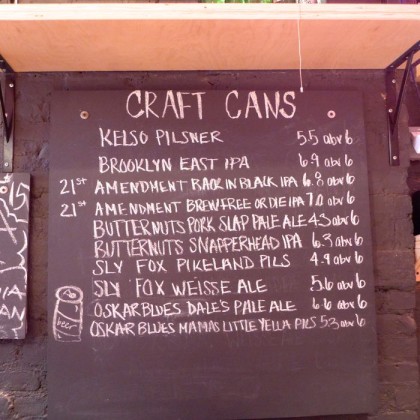 CRAFT CANS
KELSO PILSNER 5.5 abv 6
BROOKLYN EAST IPA 6.9 abv 6
21ST AMENDMENT BACK IN BLACK IPA 6.8 abv 6
21ST AMENDMENT BREW FREE OR DIE IPA 7.0 abv 6
BUTTERNUTS PORK SLAP PALE ALE 4.3 abv 6
BUTTERNUTS SNAPPERHEAD IPA 6.3 abv 6
SLY FOX PIKELAND PILS 4.9 abv 6
SLY FOX WEISSE ALE 5.6 abv 6
OSKAR BLUES DALE'S PALE ALE 6.6 abv 6
OSKAR BLUES MAMAS LITTLE YELLA PILS 5.3 abv 6
beer